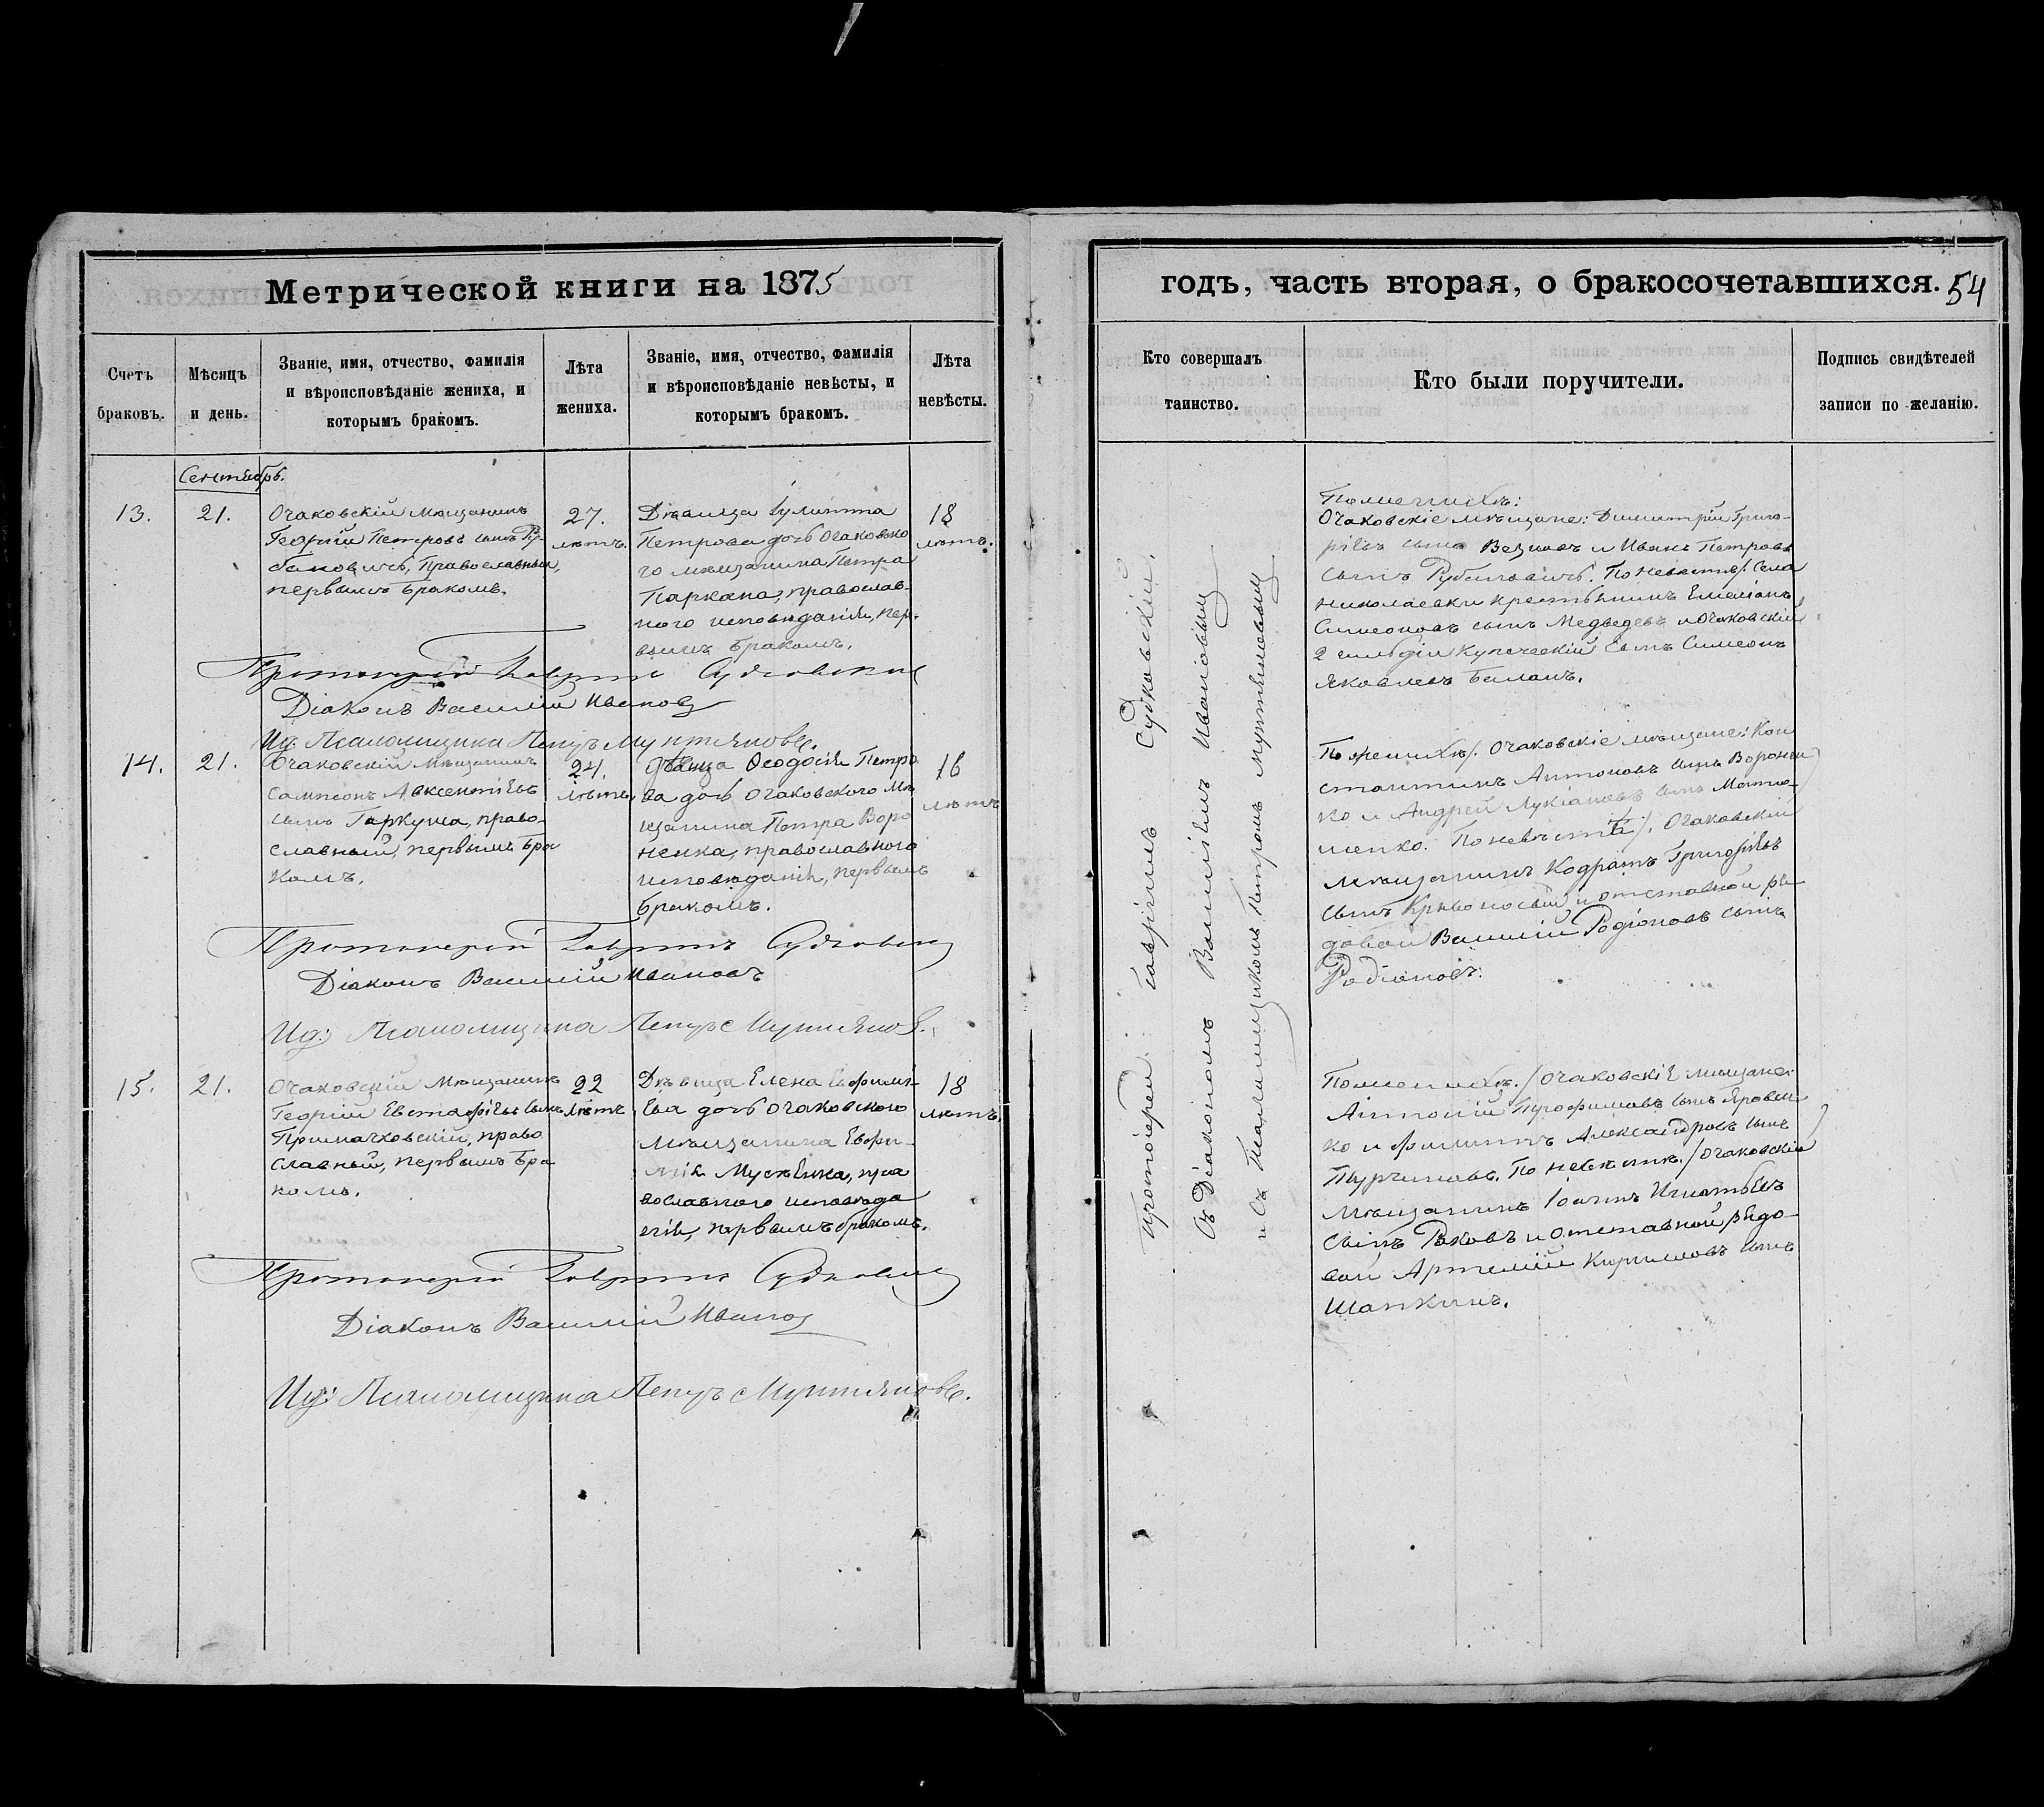 Метрической книги на 1875
Счетъ
браковъ.
Мѣсяцъ
и день.
Званіе, имя, отчество, фамилія
и вѣроисповѣданіе жениха, и
которымъ бракомъ.
Лѣта
жениха.
Званіе, имя, отчество, фамилія
и вѣроисповѣданіе невѣсты, и
которымъ бракомъ.
Лѣта
невѣсты.
Сентябрь.
13.
21.
Очаковскій мѣщанинъ
Георгій Петровъ сынъ Ру-
бановичъ, православный,
первымъ бракомъ.
27.
лѣтъ.
Дѣвица Іулитта
Петрова дочь Очаковско
го мѣщанина Петра
Паркана, православ-
ного исповѣданія, пер-
вымъ бракомъ.
18
лѣтъ.
Протоіерей Гавріилъ Судковскій
Діаконъ Василій Ивановъ
Ид: Псаломщика Петръ Мунтяновъ.
14.
21.
Очаковскій мѣщанинъ
Сампсонъ Авксентіевъ
сынъ Гаркуша, право-
славный, первымъ бра
комъ.
24.
лѣтъ.
Дѣвица Ѳеодосія Петро
ва дочь Очаковского мѣ
щанина Петра Воро
ненка, православного
исповѣданія, первымъ
бракомъ.
16
лѣтъ
Протоіерей Гавріилъ Судковскій
Діаконъ Василій Ивановъ
Ид: Псаломщика Петръ Мунтяновъ.
15.
21.
Очаковскій мѣщанинъ
Георгій Евстафіевъ сынъ
право
славный, первымъ бра
комъ.
22
лѣтъ
Дѣвица Елена Евфимі-
ева дочь Очаковского
мѣщанина Евфи-
мія пра
вославного исповѣда
нія, первымъ бракомъ.
18
лѣтъ.
Протоіерей Гавріилъ Судковскій
Діаконъ Василій Ивановъ
Ид: Псаломщика Петръ Мунтяновъ.
годъ, часть вторая, о бракосочетавшихся. 54
Кто совершалъ
таинство.
Кто были поручители.
Подпись свидѣтелей
записи по желанію.
Протоіерей: Гавріилъ Судковскій,
съ Діакономъ Василіемъ Ивановымъ
и съ Псаломщикомъ Петромъ Мунтяновымъ
По женихѣ:
Очаковскіе мѣщане: Димитрій Григо-
ріевъ сынъ и Иванъ Петровъ
сынъ Рубановичъ. По невѣстѣ: Села
Николаевки крестьянинъ Емеліанъ
Симеоновъ сынъ Медведевъ и Очаковскій
2 гильдіи купеческій сынъ Симеонъ
Яковлевъ Баланъ.
По женихѣ/. Очаковскіе мѣщане: Кон
стантинъ Антоновъ сынъ Воронен
ко и Андрей Лукіановъ сынъ Матю-
шенко. По невѣстѣ/. Очаковскій
мѣщанинъ Кодратъ Григоріевъ
сынъ Кривоносый и отставной ря
довой Василій Родіоновъ сынъ
Родіоновъ.
По женихѣ./ Очаковскіе мѣщане:
Антоній Трофимовъ сынъ Яровен
ко и Филиппъ Александровъ сынъ
Пурчиновъ. По невѣстѣ./ Очаковскій
мѣщанинъ Іоаннъ Игнатьевъ
сынъ Раковъ и отставной рядо-
вой Артемій Кириловъ сынъ
Шапкинъ.